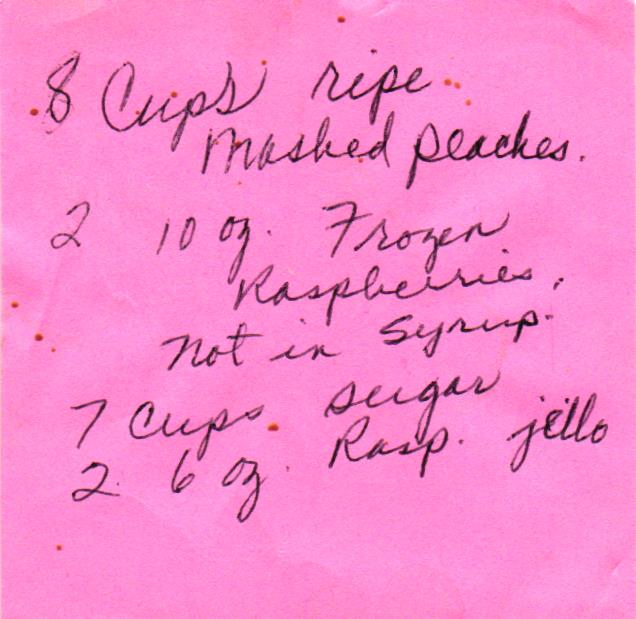 8 Cups ripe
Mashed peaches.
2 10 oz. Frozen
Raspberries.
Not in Syrup.
7 Cups sugar
2 6 oz. Rasp. jello